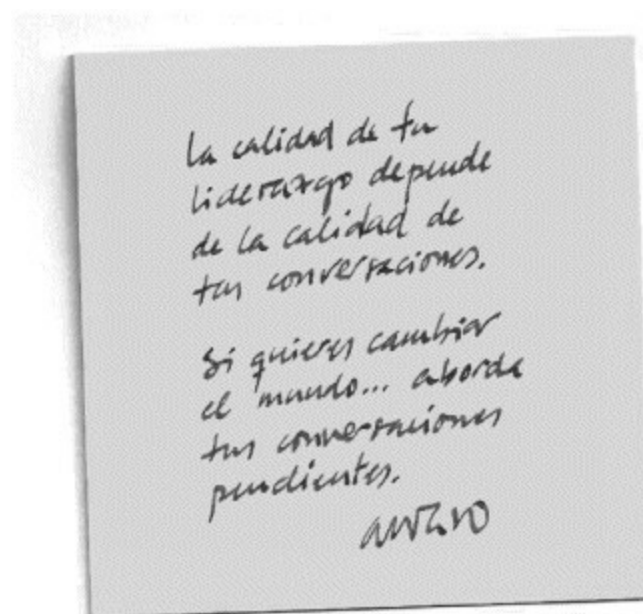 La calidad de tu
liderazgo depende
de la calidad de
tus conversaciones.
Si quieres cambiar
el mundo... aborda
tus conversaciones
pendientes.